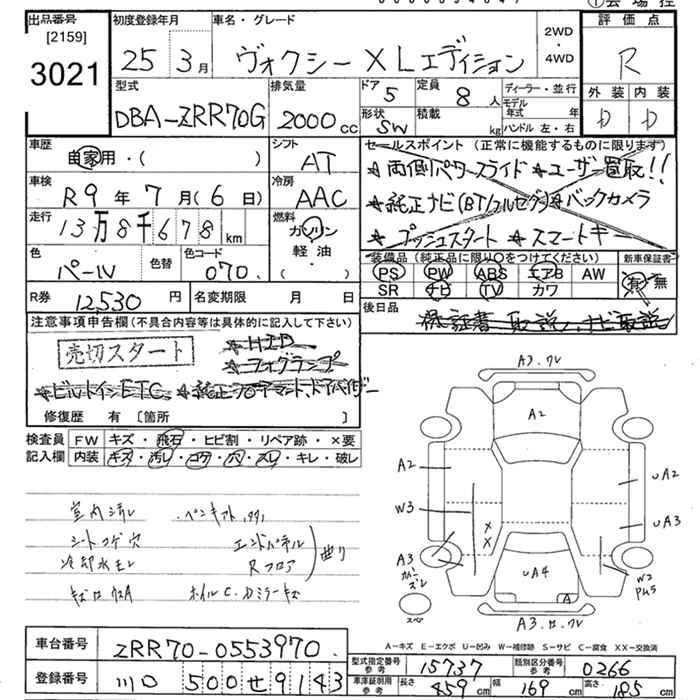 出品番号
[2159]
3021
初度登録年月
25 3月
車名・グレード
ヴォクシー X Lエディション
2WD
・
4WD
評価点
R
外装 内装
D D
型式
DBA-ZRR70G
排気量
2000 cc
ドア 5
形状 SW
定員 8 人
積載 kg
ディーラー・並行
モデル
年式 年
ハンドル 左・右
車歴
自家用・( )
シフト
AT
車検
R9年7月(6日)
冷房
AAC
走行
13万8千678 km
燃料
ガソリン
軽油・( )
色
パール
色替
色コード
070
R券 12530円
名変期限 月 日
セールスポイント (正常に機能するものに限ります)
★両側パワースライド ★ユーザー買取!!
★純正ナビ(BT/フルセグ) ★バックカメラ
★プッシュスタート ★スマートキー
装備品(純正品に限り○をつけてください)
新車保証書
PS PW ABS エアB AW
有・無
SR ナビ TV カワ
後日品
保証書 取説、ナビ取説
注意事項申告欄(不具合内容等は具体的に記入して下さい)
売切スタート
★HID
★フォグランプ
★ビルトインETC
修復歴 有 [箇所 ]
検査員
記入欄
FW キズ・飛石・ヒビ割・リペア跡・×要
内装 キズ・汚レ・コゲ・穴・スレ・キレ・破レ
室内汚レ
シートコゲ穴
冷却水モレ
エンドパネル
Rフロア
曲り
ホイルC.Dミラーキズ
A3.ワレ
A2
A2
W3
A3
スペア
××
UA2
UA3
UA4
A
W2
A3.ヨ.ワレ
A-キズ E-エクボ U-凹み W-補修跡 S-サビ C-腐食 XX-交換済
車台番号
ZRR70-0553970
登録番号
川口 500 せ 9143
型式指定番号
参考
15737
類別区分番号
参考
0266
車庫証明用
参考
長さ 459 cm
幅 169 cm
高さ 185 cm